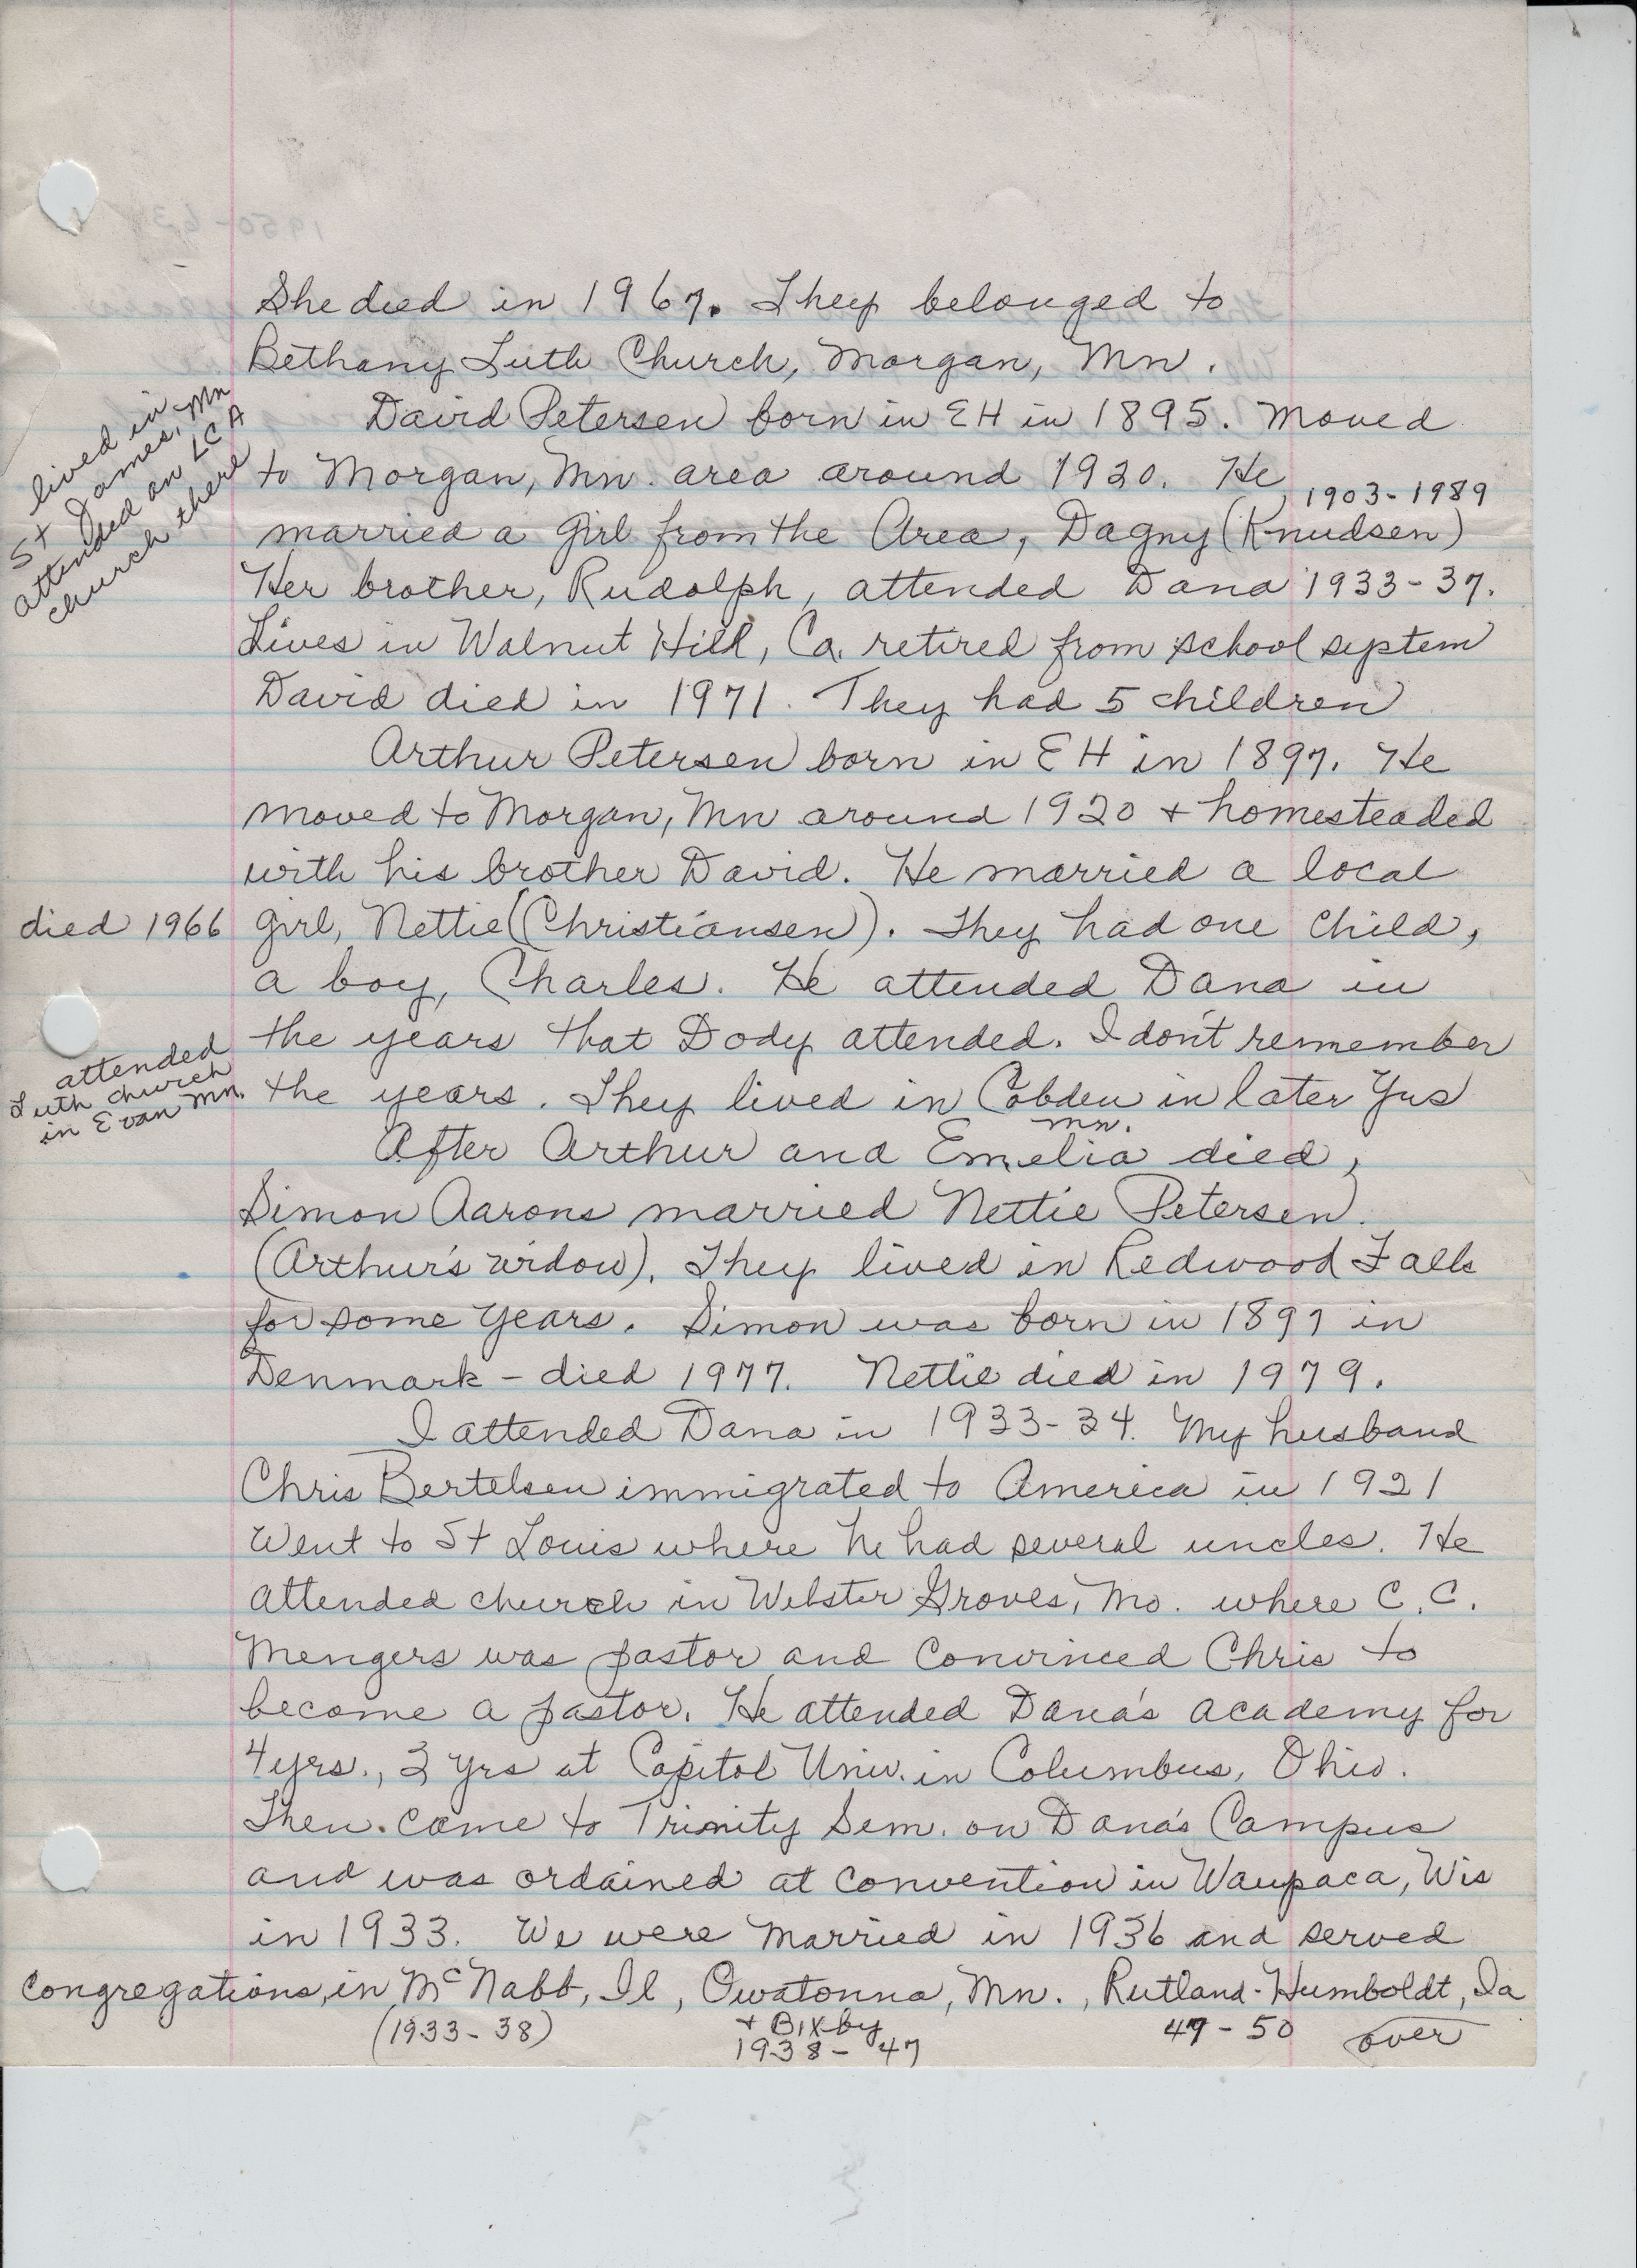 She died in 1967. They belonged to
Bethany Luth Church, Morgan, Mn.
David Petersen born in EH in 1895. Moved
lived in
St James, Mn
attended an LCA
church there
to Morgan, Mn. area around 1920. He
1903-1989
married a girl from the Area, Dagny (Knudsen)
Her brother, Rudolph, attended Dana 1933-37.
Lives in Walnut Hill, Ca. retired from school system
David died in 1971. They had 5 children
Arthur Petersen born in EH in 1897. He
moved to Morgan, Mn around 1920 + homesteaded
with his brother David. He married a local
died 1966 girl, Nettie (Christiansen). They had one child,
a boy, Charles. He attended Dana in
the years that Dody attended. I don't remember
attended
Luth church
in Evan Mn.
the years. They lived in Cobden in later yrs
Mn.
After Arthur and Emelia died,
Simon Aarons married Nettie Petersen
(Arthur's widow). They lived in Redwood Falls
for some years. Simon was born in 1897 in
Denmark - died 1977. Nettie died in 1979.
I attended Dana in 1933-34. My husband
Chris Bertelsen immigrated to America in 1921
Went to St Louis where he had several uncles. He
attended church in Webster Groves, Mo. where C.C.
Mengers was pastor and convinced Chris to
become a pastor. He attended Dana's academy for
4 yrs., 2 yrs at Capitol Univ. in Columbus, Ohio.
Then came to Trinity Sem. on Dana's Campus
and was ordained at convention in Waupaca, Wis
in 1933. We were married in 1936 and served
congregations, in McNabb, Il, Owatonna, Mn., Rutland-Humboldt, Ia
(1933-38) + Bixby 47-50 over
1938-47